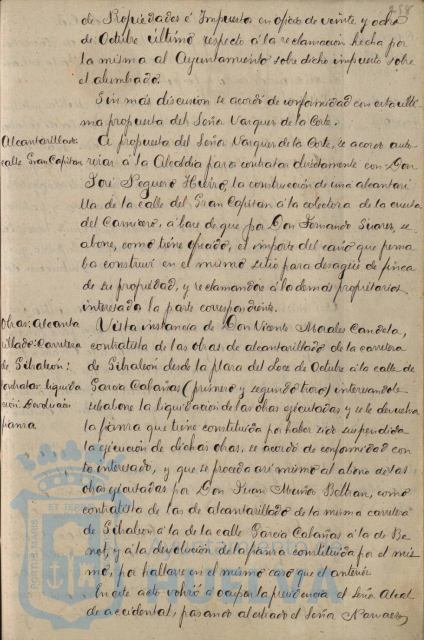 258
de Propiedades é Impuestos en oficio de veinte y ocho
de Octubre último respecto á la reclamación hecha por
la misma al Ayuntamiento sobre dicho impuesto sobre
el alumbrado.
Sin más discusion se acordó de conformidad con esta últi
ma propuesta del Señor Vazquez de la Corte.
Alcantarillado:
calle Gran Capitan
A propuesta del Señor Vazquez de la Corte, se acordó auto-
rizar á la Alcaldia para contratar directamente con Don
José Peguero Hierro, la construcción de una alcantari
lla de la calle del Gran Capitan á la colectora de la cuesta
del Carnicero, á base de que por Don Fernando Suarez, se
abone, como tiene ofrecido, el importe del caño que pensa
ba construir en el mismo sitio para desagüe de finca
de su propiedad, y reclamandose á los demás propietarios
interesados la parte correspondiente.
Obras: Alcanta
rillado: Carretera
de Gibraleón:
Contratas: liquida
cion: Devolución
fianza
Vista instancia de Don Vicente Morales Candela,
contratista de las obras de alcantarillado de la carretera
de Gibraleón desde la plaza del Doce de Octubre á la calle de
Garcia Cabañas (primero y segundo trozo) interesando se
le abone la liquidación de las obras ejecutadas y se le devuelva
la fianza que tiene constituida por haber sido suspendida
la ejecución de dichas obras, se acordó de conformidad con
lo interesado, y que se proceda asi mismo al abono de las
obras ejecutadas por Don Juan Muñoz Beltran, como
contratista de las de alcantarillado de la misma carretera
de Gibraleón á la de la calle Garcia Cabañas á la de Be
not, y á la devolución de la fianza constituida por el mis
mo, por hallarse en el mismo caso que el anterior.
En este acto volvió á ocupar la presidencia el Señor Alcal
de accidental, pasando al estrado el Señor Narvaez
PORTUS MARIS ET TERRAE
HUELVA